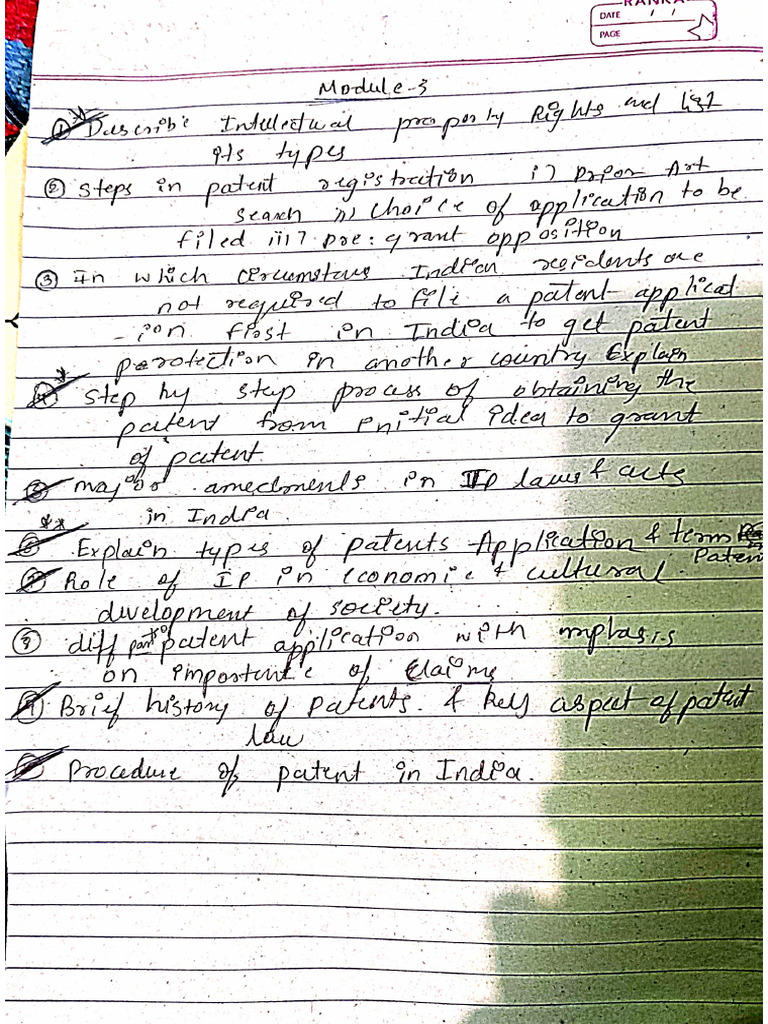 RANKA
DATE / /
PAGE
Module-3
① Describe Intellectual property Rights and list
its types
② Steps in patent registration i) Prior Art
search ii) Choice of application to be
filed iii) pre: grant opposition
③ In which circumstans Indian residents are
not required to file a patent applicat
-ion first in India to get patent
protection in another country Explain
④ Step by step process of obtaining the
patent from initial idea to grant
of patent
major amedments in IP laws & acts
in India.
Explain types of patents Application & term
Patent
Role of IP in economic & cultural
development of society.
diff parts of patent application with emphasis
on importance of Claims
Brief history of patents. & key aspect of patent
law
Procedure of patent in India.